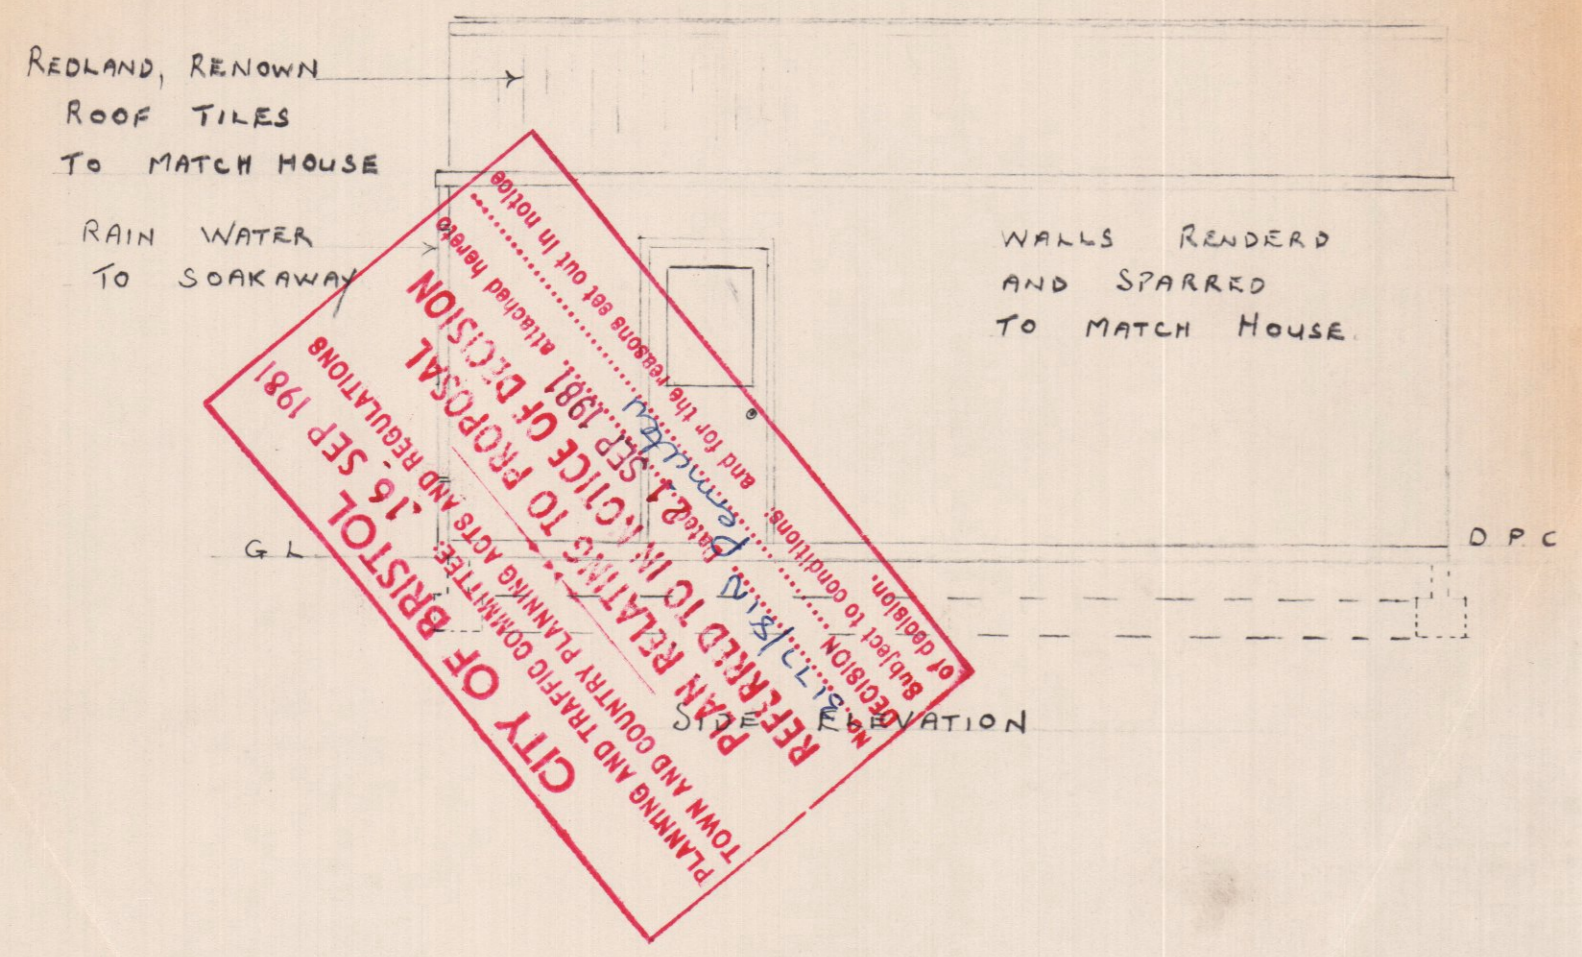 REDLAND, RENOWN
ROOF TILES
TO MATCH HOUSE
RAIN WATER
TO SOAKAWAY
WALLS RENDERD
AND SPARRED
TO MATCH HOUSE.
G L
D P C
SIDE ELEVATION
CITY OF BRISTOL 16 SEP 1981
PLANNING AND TRAFFIC COMMITTEE.
TOWN AND COUNTRY PLANNING ACTS AND REGULATIONS
PLAN RELATING TO PROPOSAL
REFERRED TO IN NOTICE OF DECISION
No. 3177/81N Dated 21 SEP 1981. attached hereto
DECISION
Subject to conditions. and for the reasons set out in notice
of decision.